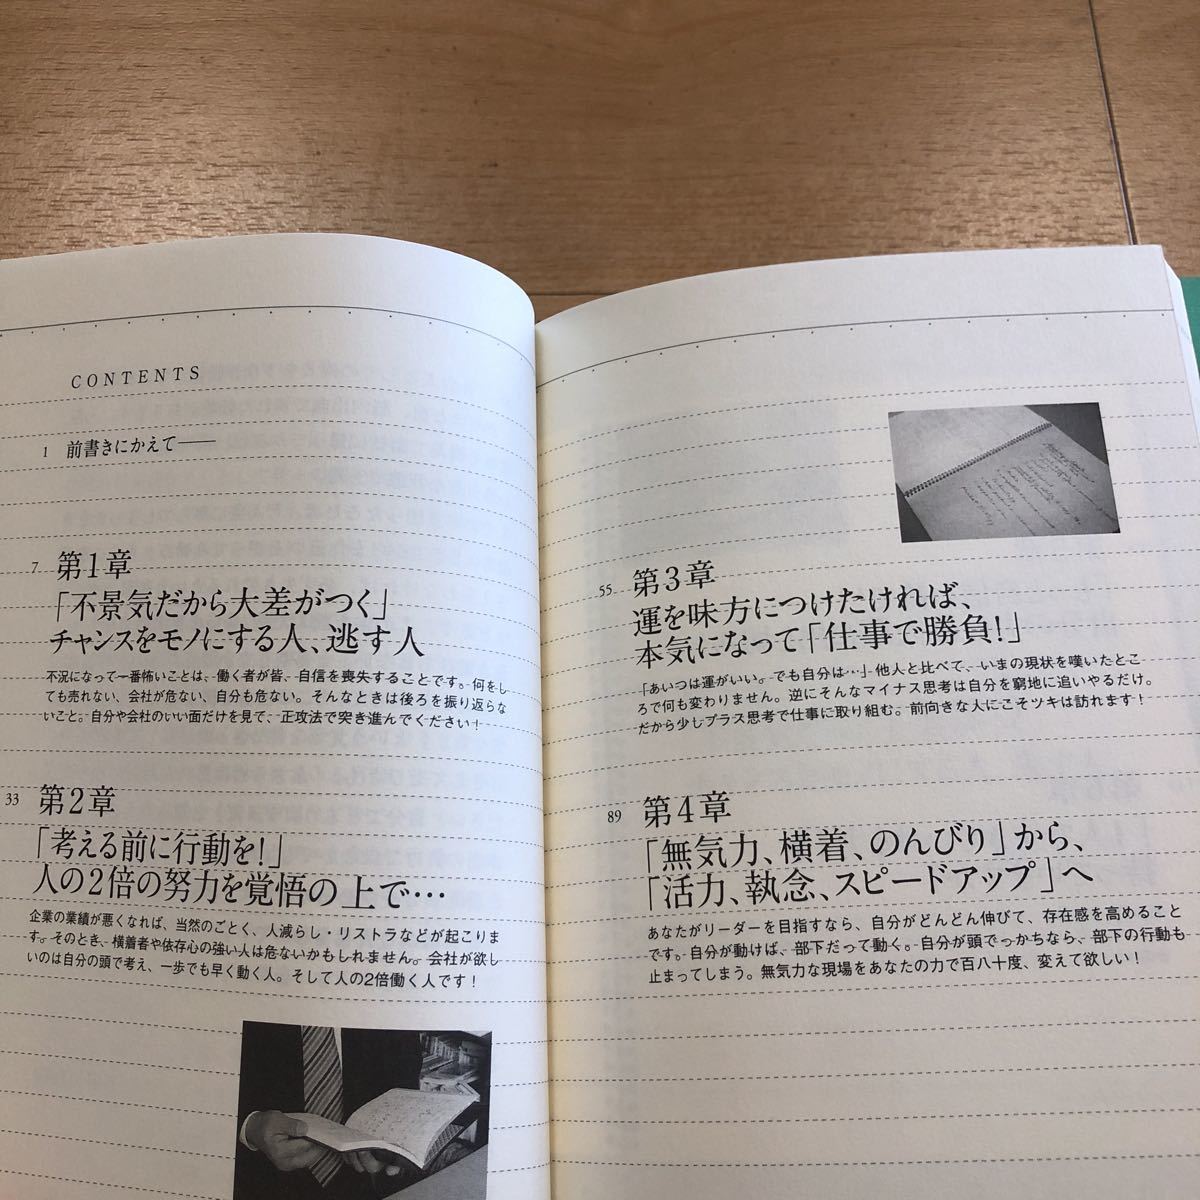 CONTENTS
1 前書きにかえて――
7 第1章
「不景気だから大差がつく」
チャンスをモノにする人、逃す人
不況になって一番怖いことは、働く者が皆、自信を喪失することです。何をし
ても売れない、会社が危ない、自分も危ない。そんなときは後ろを振り返らな
いこと。自分や会社のいい面だけを見て、正攻法で突き進んでください！
33 第2章
「考える前に行動を！」
人の2倍の努力を覚悟の上で…
企業の業績が悪くなれば、当然のごとく、人減らし・リストラなどが起こりま
す。そのとき、横着者や依存心の強い人は危ないかもしれません。会社が欲し
いのは自分の頭で考え、一歩でも早く動く人。そして人の2倍働く人です！
55 第3章
運を味方につけたければ、
本気になって「仕事で勝負！」
「あいつは運がいい。でも自分は…」他人と比べて、いまの現状を嘆いたとこ
ろで何も変わりません。逆にそんなマイナス思考は自分を窮地に追いやるだけ。
だから少しプラス思考で仕事に取り組む。前向きな人にこそツキは訪れます！
89 第4章
「無気力、横着、のんびり」から、
「活力、執念、スピードアップ」へ
あなたがリーダーを目指すなら、自分がどんどん伸びて、存在感を高めること
です。自分が動けば、部下だって動く。自分が頭でっかちなら、部下の行動も
止まってしまう。無気力な現場をあなたの力で百八十度、変えて欲しい！